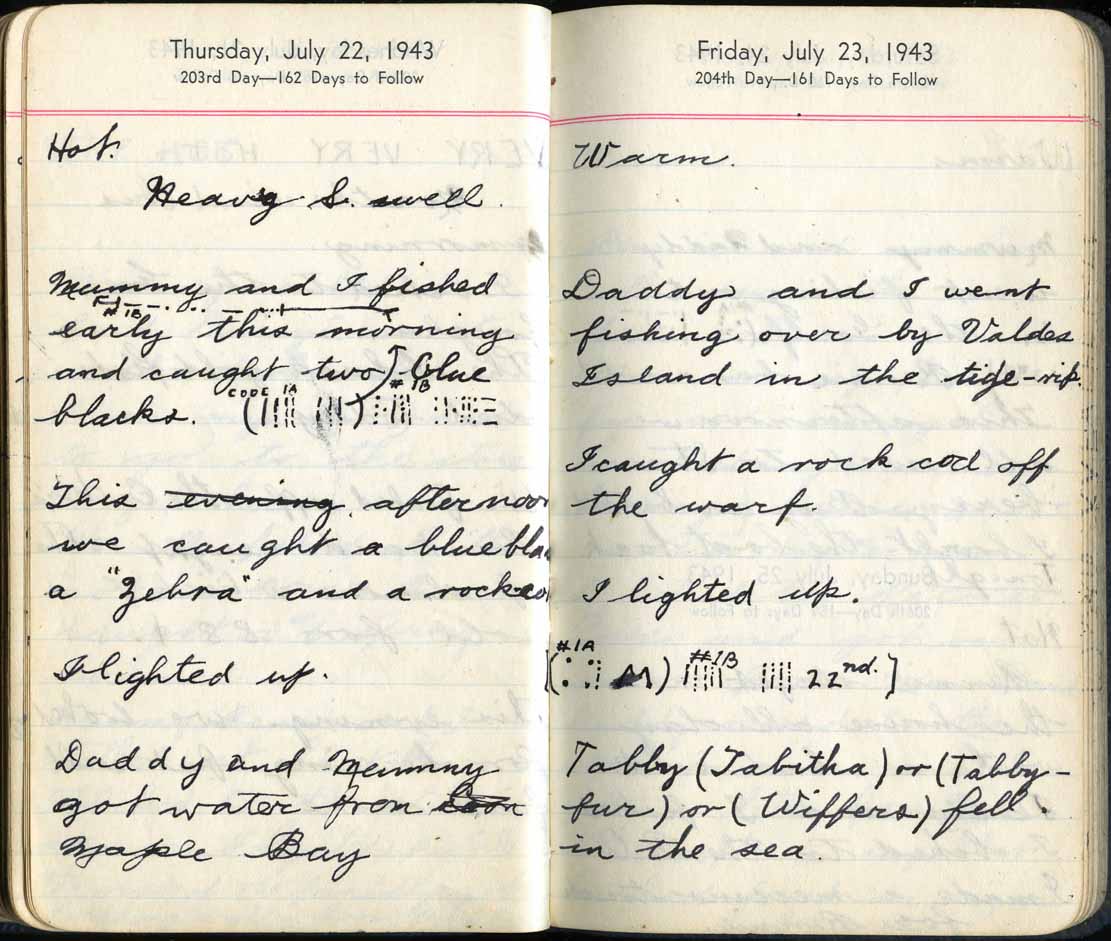 Thursday, July 22, 1943
203rd Day—162 Days to Follow
Hot.
Heavy S. swell.
Mummy and I fished
early this morning
and caught two) Blue
blacks.
CODE 1A # 1B
This evening afternoon
we caught a blue bla
a "Zebra" and a rock co
I lighted up.
Daddy and Mummy
got water from
Maple Bay
Friday, July 23, 1943
204th Day—161 Days to Follow
Warm.
Daddy and I went
fishing over by Valdes
Island in the tide-rip.
I caught a rock cod off
the warf.
I lighted up.
#1A #1B 22nd.
Tabby (Tabitha) or (Tabby-
fur) or (Wiffers) fell
in the sea.